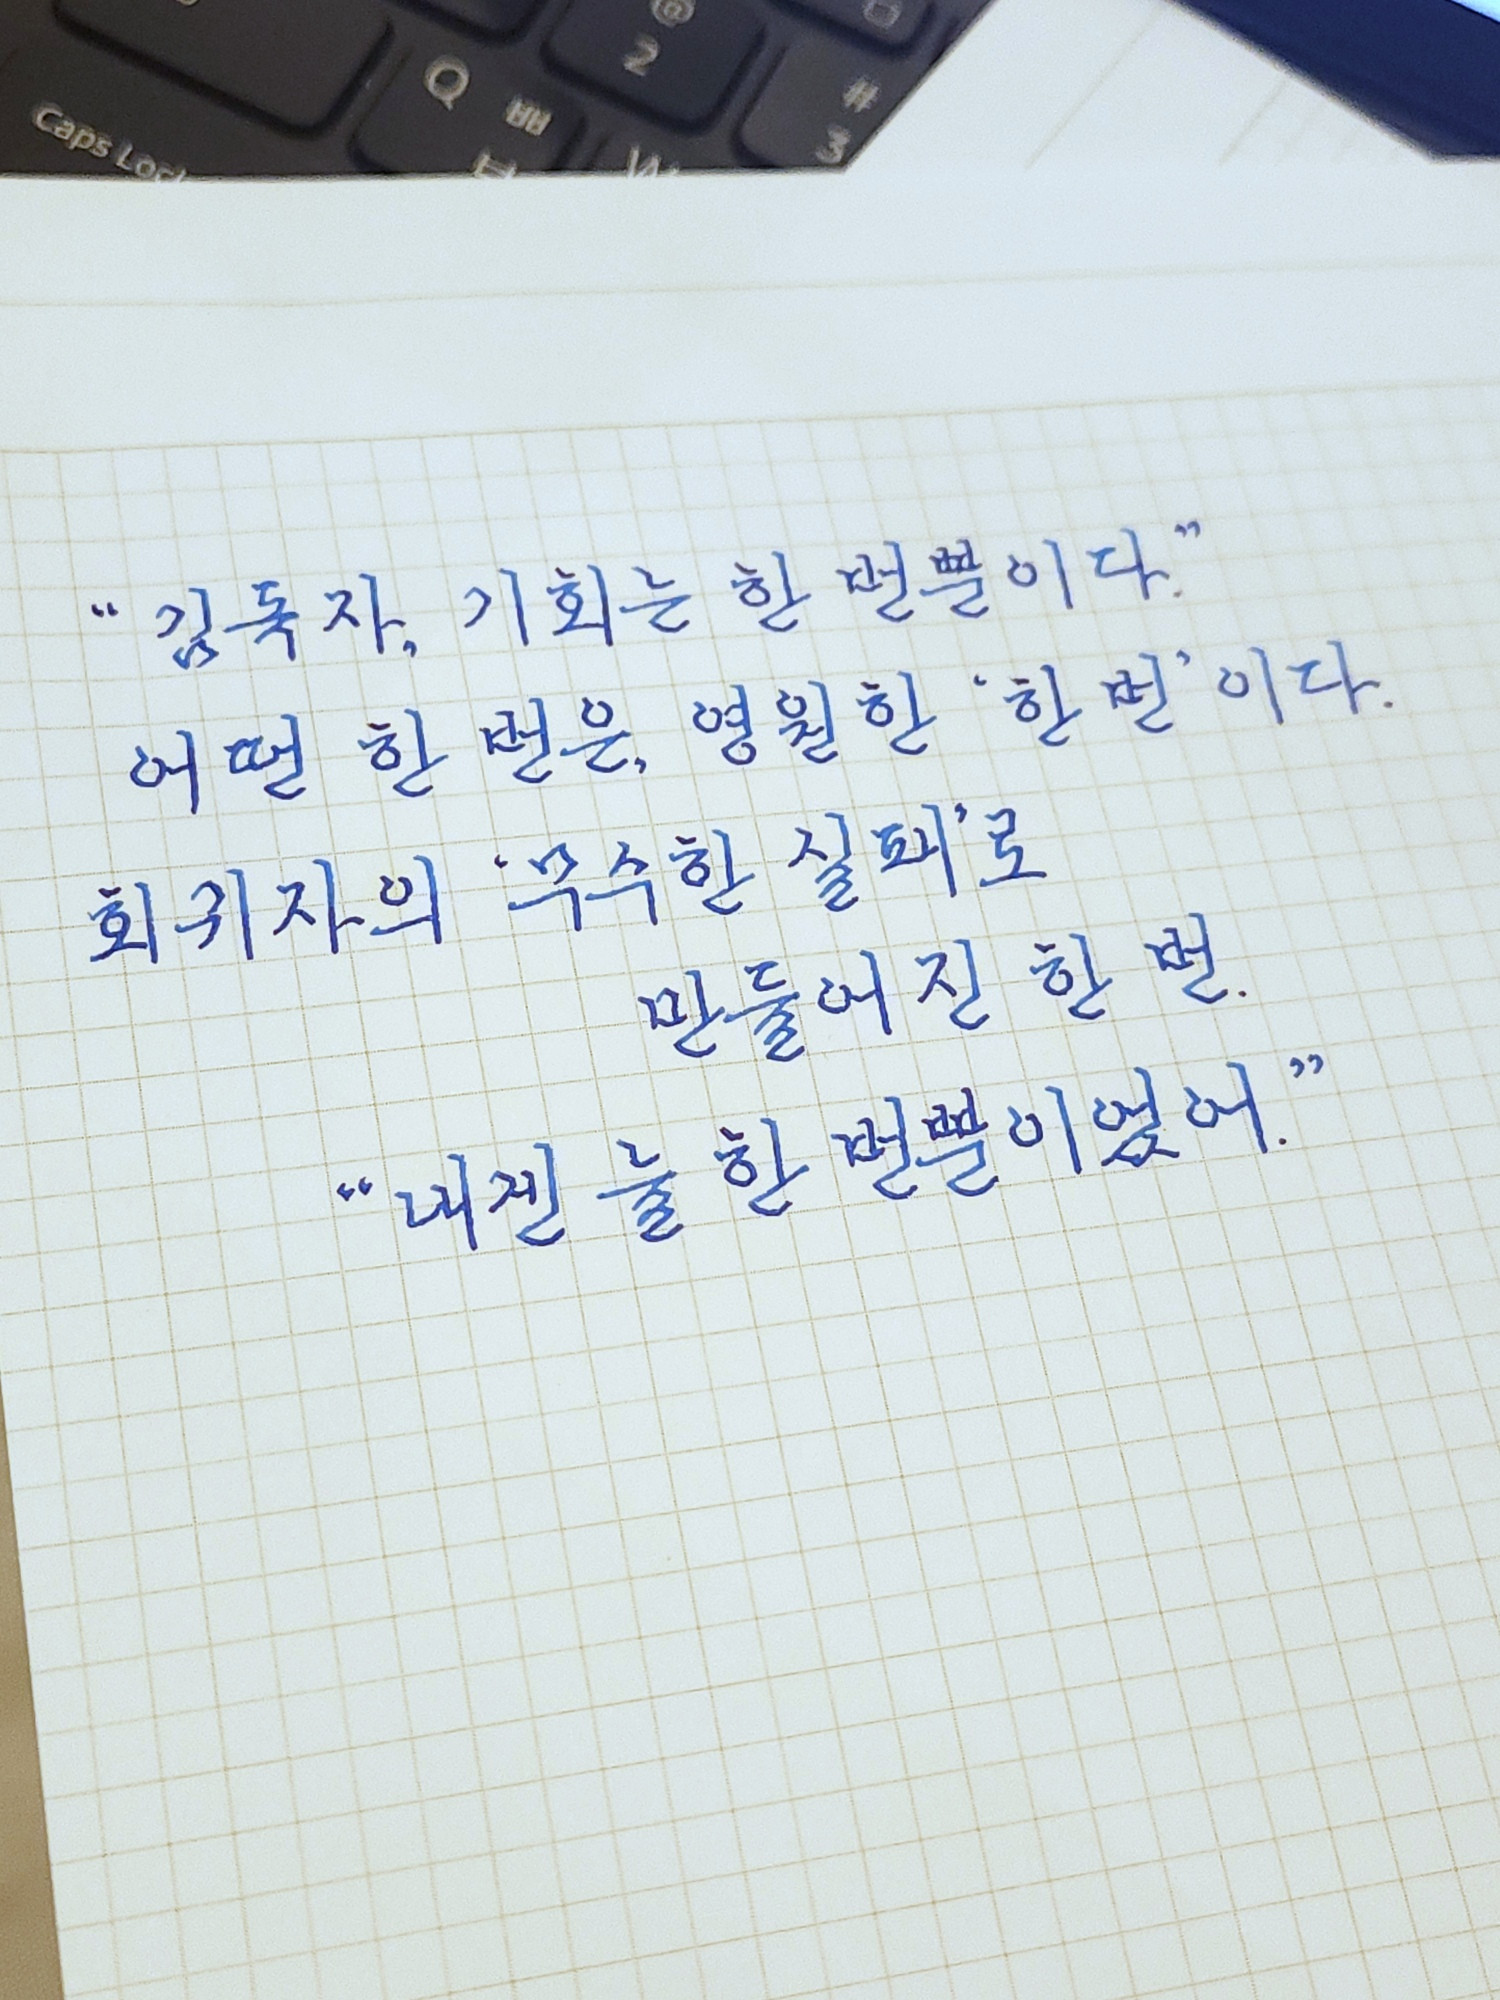 @
2
#
3
Q ㅃ
ㅂ
W
Caps Lock
“김독자, 기회는 한 번뿐이다.”
어떤 한 번은, 영원한 ‘한 번’이다.
회귀자의 ‘무수한 실패’로
만들어진 한 번.
“내겐 늘 한 번뿐이었어.”